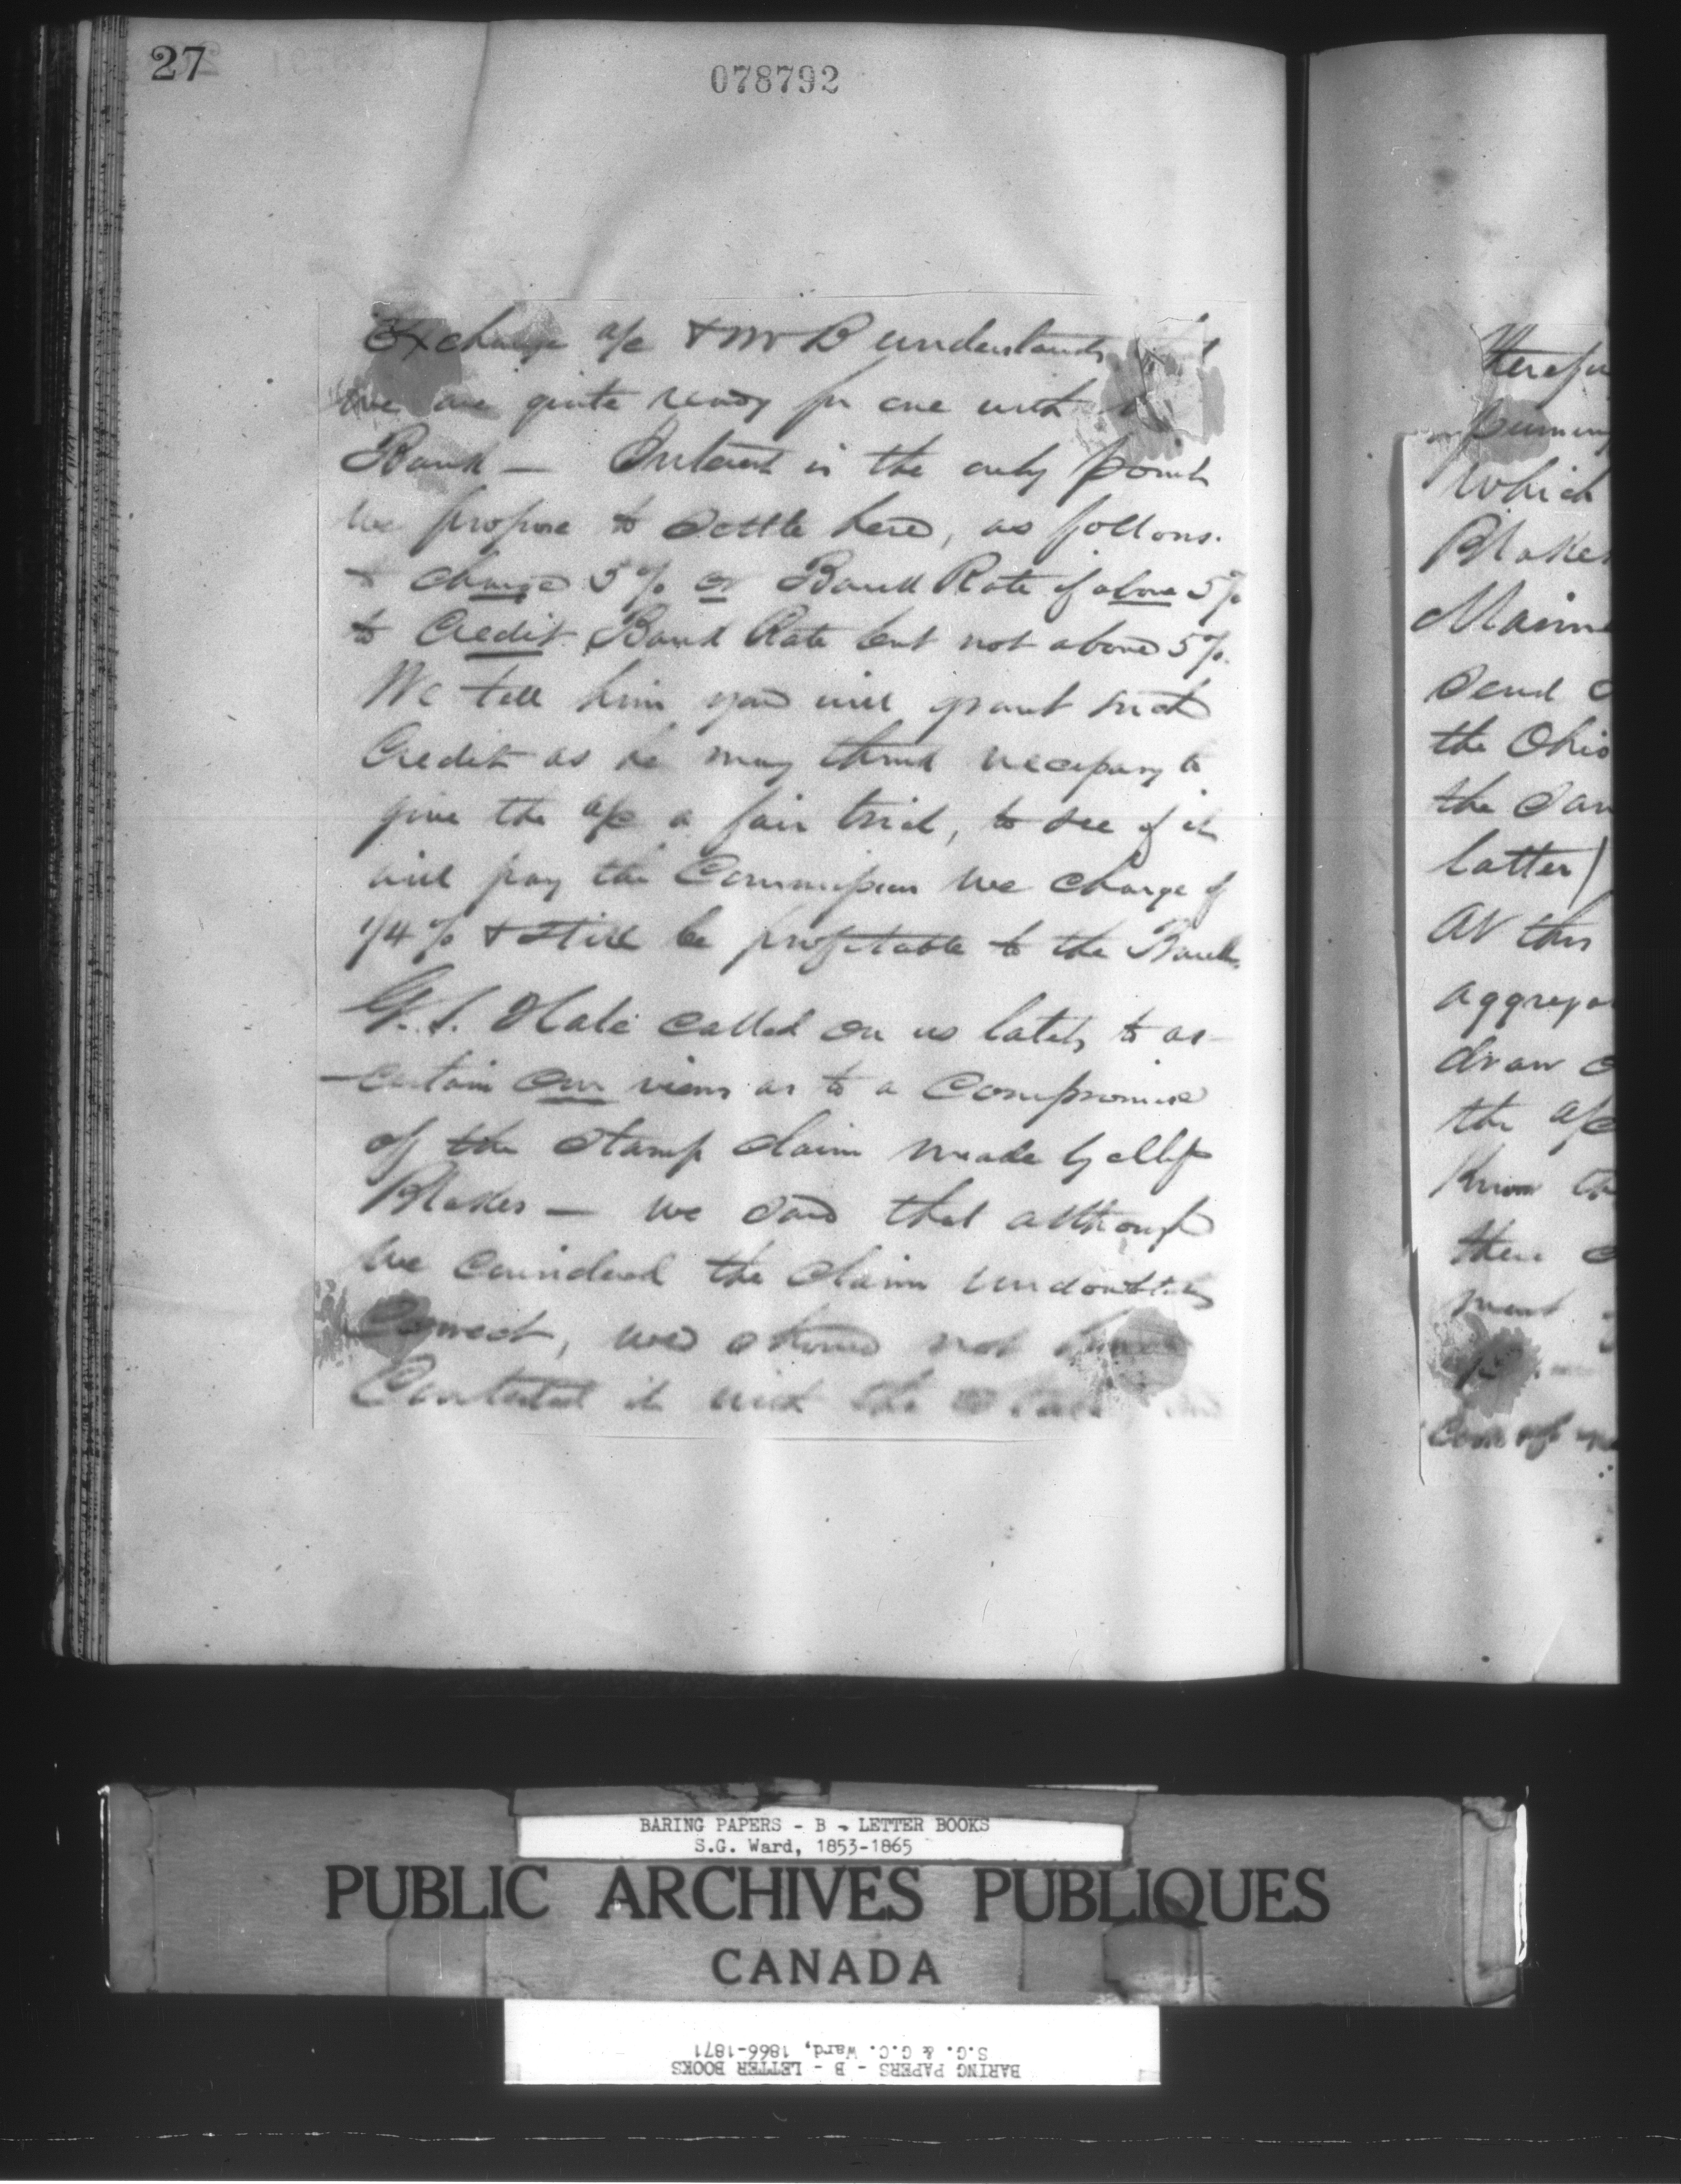 27
078792
Exchange a/c & Mr B understands
we are quite ready for one with
Bank — Interest is the only point
we propose to settle here, as follows.
to charge 5% or Bank Rate if above 5%
to Credit Bank Rate but not above 5%.
We tell him you will grant such
Credit as he may think necessary to
give the a/c a fair trial, to see if it
will pay the Commission we charge of
1/4% & still be profitable to the Bank.
G. S. Hale called on us lately to as-
-certain our views as to a Compromise
of the stamp claim made by
Blakes — We said that although
we considered the claim undoubtedly
Correct, we should not have
Contested it with the
which
Blakes
Maine
send
the Ohio
the
latter)
at this
draw
the a/c
Know
there
BARING PAPERS - B - LETTER BOOKS
S.G. Ward, 1853-1865
PUBLIC ARCHIVES PUBLIQUES
CANADA
BARING PAPERS - B - LETTER BOOKS
S.G. & G.C. Ward, 1866-1871